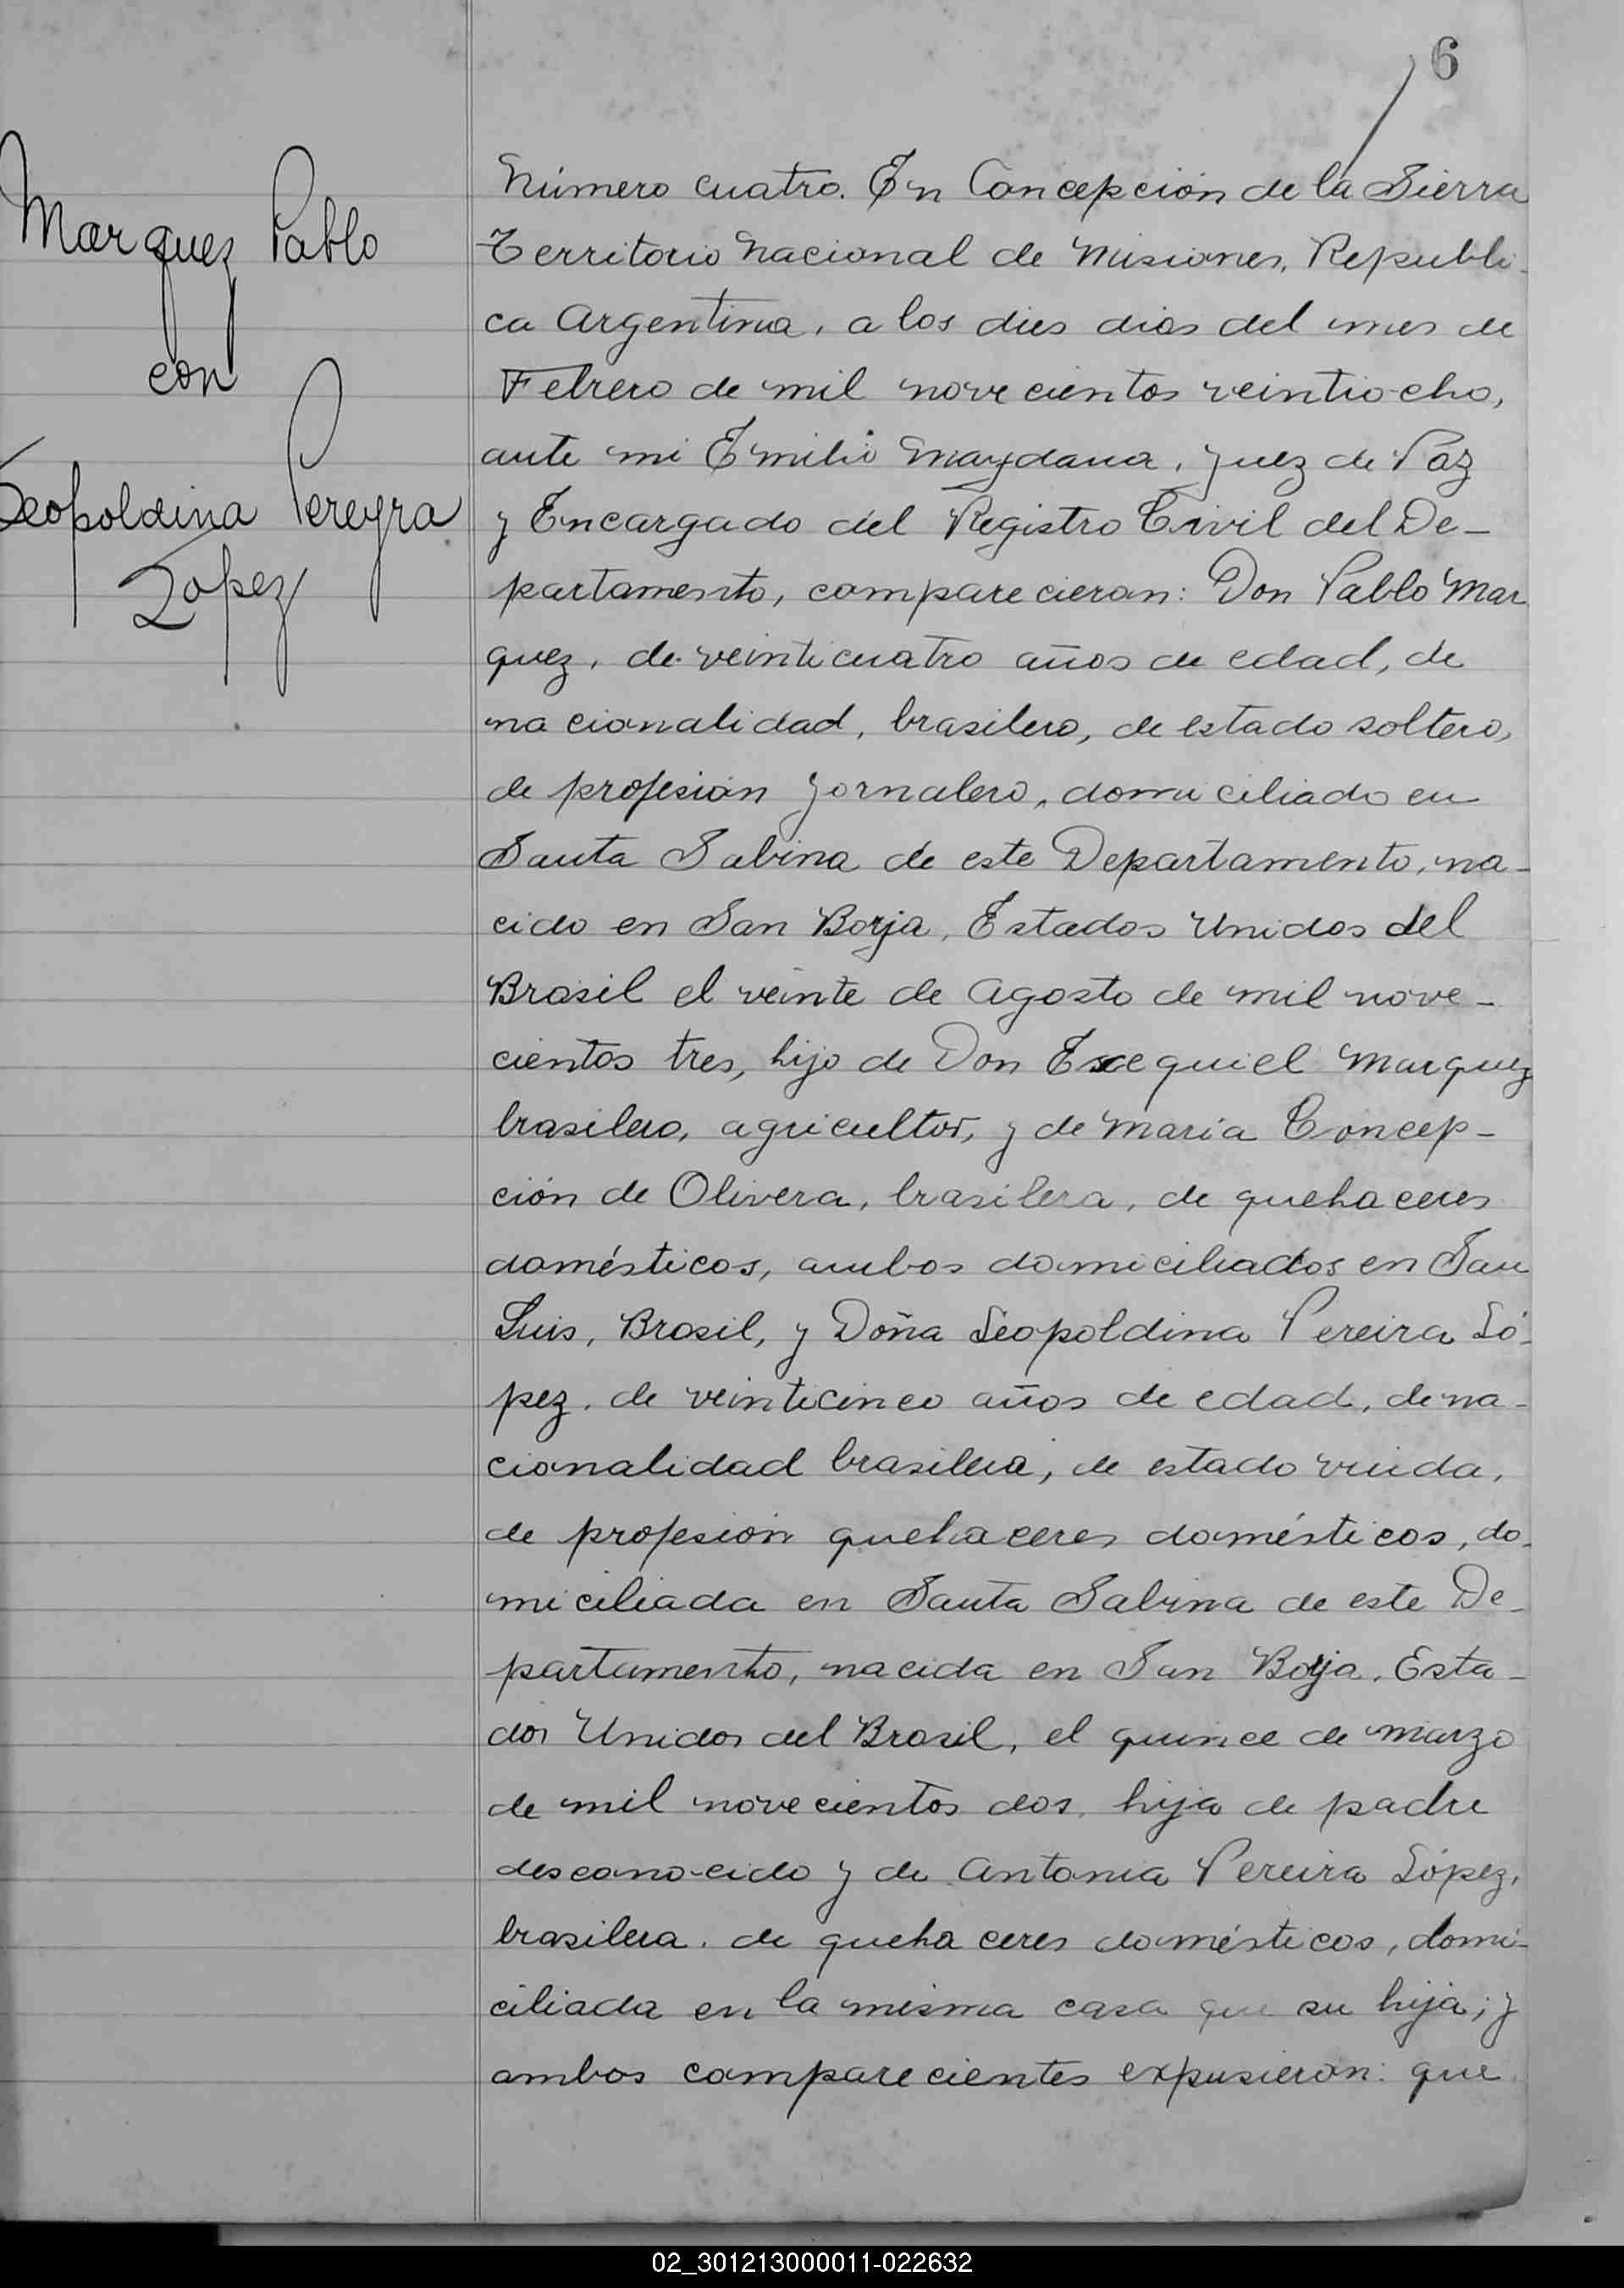 6
Marquez Pablo
con
Leopoldina Pereyra
Lopez
Número cuatro. En Concepción de la Sierra
Territorio Nacional de Misiones, Republi-
ca Argentina, a los dies dias del mes de
Febrero de mil novecientos veintiocho,
ante mi Emilio Maydana, Juez de Paz
y Encargado del Registro Civil del De-
partamento, comparecieron: Don Pablo Mar
quez, de veinticuatro años de edad, de
nacionalidad, brasilero, de estado soltero,
de profesión jornalero, domiciliado en
Santa Sabina de este Departamento, na-
cido en San Borja, Estados Unidos del
Brasil el veinte de Agosto de mil nove-
cientos tres, hijo de Don Exequiel Marquez
brasilero, agricultor, y de Maria Concep-
ción de Olivera, brasilera, de quehaceres
domésticos, ambos domiciliados en San
Luis, Brasil, y Doña Leopoldina Pereira Ló-
pez, de veinticinco años de edad, de na-
cionalidad brasilera, de estado viuda,
de profesión quehaceres domésticos, do-
miciliada en Santa Sabina de este De-
partamento, nacida en San Borja, Esta-
dos Unidos del Brasil, el quince de marzo
de mil novecientos dos, hija de padre
desconocido y de Antonia Pereira López,
brasilera, de quehaceres domésticos, domi-
ciliada en la misma casa que su hija; y
ambos comparecientes expusieron: que
02_301213000011-022632